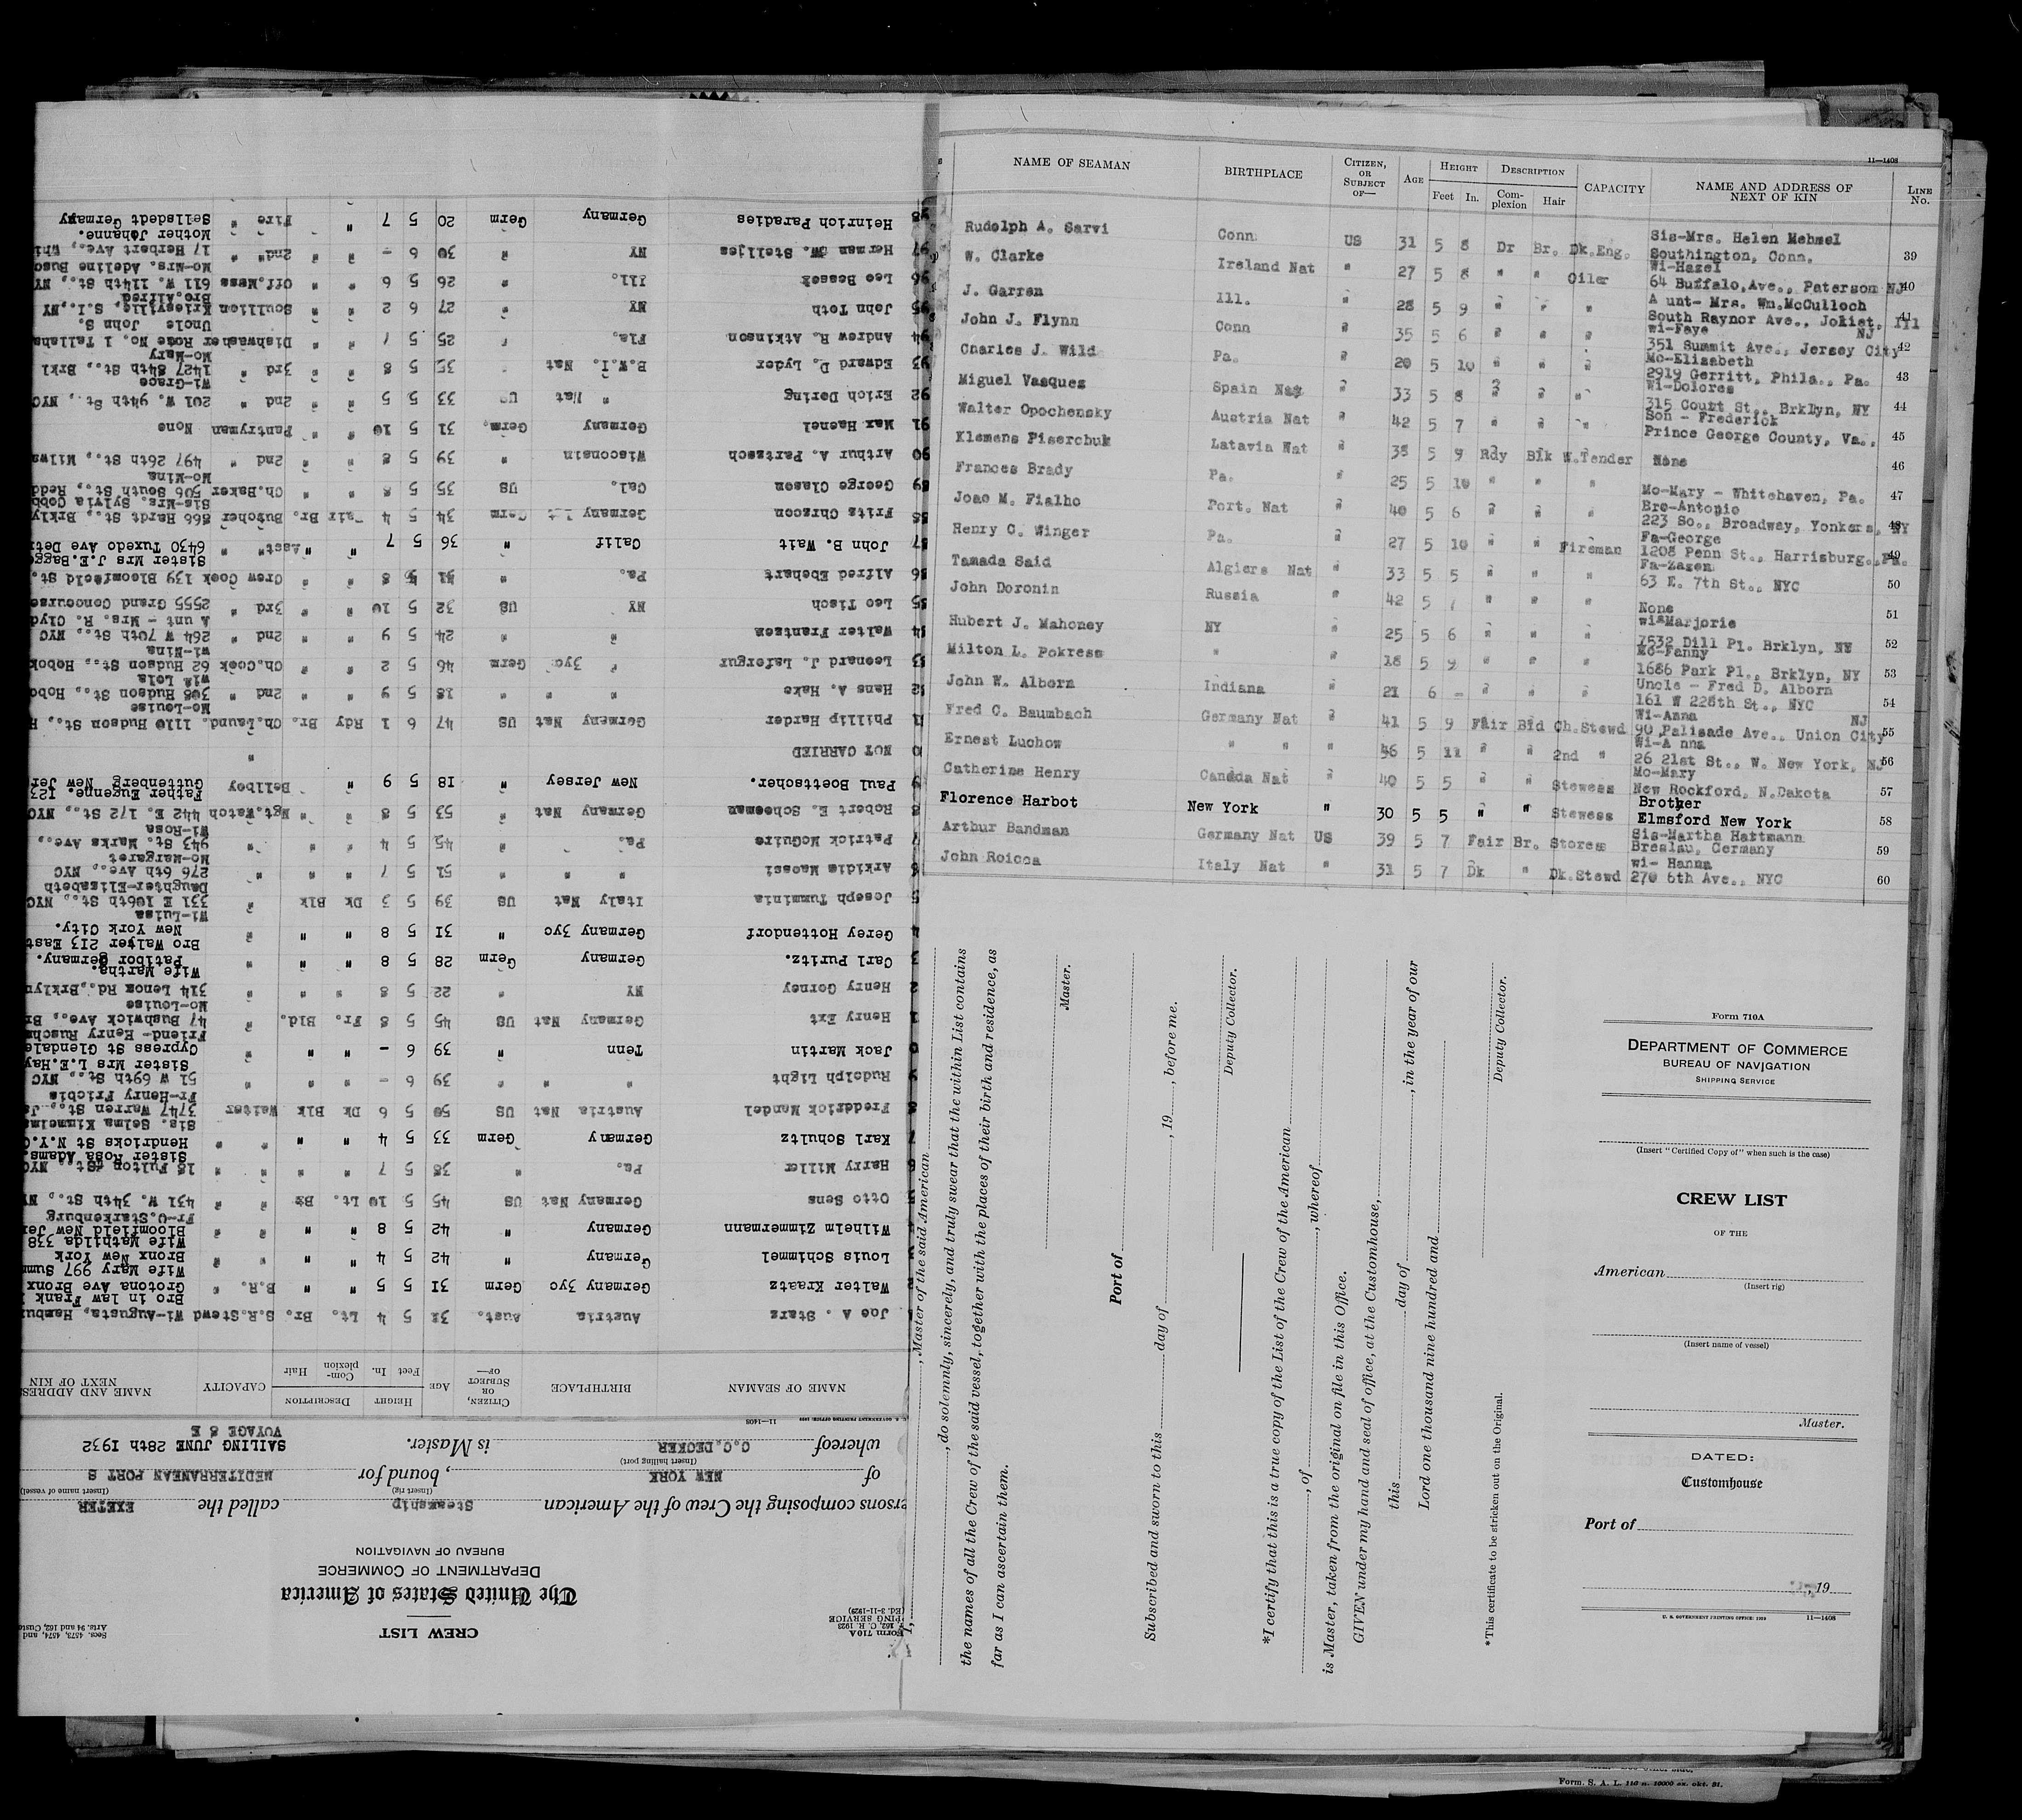 11—1408
NAME OF SEAMAN BIRTHPLACE CITIZEN, OR SUBJECT OF— AGE HEIGHT Feet In. DESCRIPTION Complexion Hair CAPACITY NAME AND ADDRESS OF NEXT OF KIN LINE No.
Rudolph A. Sarvi Conn US 31 5 8 Dr Br. Dk.Eng. Sis-Mrs. Helen Mehmel Southington, Conn. 39
W. Clarke Ireland Nat " 27 5 8 " " Oiler Wi-Hazel 64 Buffalo,Ave., Paterson NJ 40
J. Garren Ill. " 28 5 9 " " " A unt- Mrs. Wm.McCulloch South Raynor Ave., Joliet, Ill 41
John J. Flynn Conn " 35 5 6 " " " wi-Faye 351 Summit Ave., Jersey City NJ 42
Charles J. Wild Pa. " 20 5 10 " " " Mo-Elizabeth 2919 Gerritt, Phila., Pa. 43
Miguel Vasques Spain Nat " 33 5 8 " " " Wi-Dolores 315 Court St., Brklyn, NY 44
Walter Opochensky Austria Nat " 42 5 7 " " " Son - Frederick Prince George County, Va., 45
Klemens Piserchuk Latavia Nat " 38 5 9 Rdy Blk W.Tender None 46
Frances Brady Pa. " 25 5 10 " " " Mo-Mary - Whitehaven, Pa. 47
Joao M. Fialho Port. Nat " 40 5 6 " " " Bro-Antonio 223 So., Broadway, Yonkers, NY 48
Henry C. Winger Pa. " 27 5 10 " " Fireman Fa-George 1208 Penn St., Harrisburg., Pa. 49
Tamada Said Algiers Nat " 33 5 5 " " " Fa-Zazen 63 E. 7th St., NYC 50
John Doronin Russia " 42 5 7 " " " None 51
Hubert J. Mahoney NY " 25 5 6 " " " wi-Marjorie 7532 Dill Pl. Brklyn, NY 52
Milton L. Pokress " " 18 5 9 " " " Mo-Fanny 1686 Park Pl., Brklyn, NY 53
John W. Alborn Indiana " 21 6 - " " " Uncle - Fred D. Alborn 161 W 228th St., NYC 54
Fred C. Baumbach Germany Nat " 41 5 9 Fair Bld Ch.Stewd Wi-Anna 90 Palisade Ave., Union City NJ 55
Ernest Luchow " " " 46 5 11 " " 2nd " Wi-A nna 26 21st St., W. New York, NJ 56
Catherine Henry Canada Nat " 40 5 5 " " Stewess Mo-Mary New Rockford, N.Dakota 57
Florence Harbot New York " 30 5 5 " " Stewess Brother Elmsford New York 58
Arthur Bandman Germany Nat US 39 5 7 Fair Br. Stores Sis-Martha Hattmann Breslau, Germany 59
John Roicca Italy Nat " 31 5 7 Dk " Dk.Stewd wi- Hanna 270 6th Ave., NYC 60
I, , Master of the said American
, do solemnly, sincerely, and truly swear that the within List contains
the names of all the Crew of the said vessel, together with the places of their birth and residence, as
far as I can ascertain them.
Master.
Port of
Subscribed and sworn to this day of , 19 , before me.
Deputy Collector.
*I certify that this is a true copy of the List of the Crew of the American
, of , whereof
is Master, taken from the original on file in this Office.
GIVEN under my hand and seal of office, at the Customhouse,
this day of , in the year of our
Lord one thousand nine hundred and
Deputy Collector.
*This certificate to be stricken out on the Original.
Form 710A
DEPARTMENT OF COMMERCE
BUREAU OF NAVIGATION
SHIPPING SERVICE
(Insert "Certified Copy of" when such is the case)
CREW LIST
OF THE
American
(Insert rig)
(Insert name of vessel)
Master.
DATED:
Customhouse
Port of
, 19
U. S. GOVERNMENT PRINTING OFFICE: 1929 11—1408
Form. S. A. L. 116 n. 10000 ex. okt. 31.
Form 710A
CREW LIST
Secs. 4573, 4574, and
Arts. 94 and 162, Custo
The United States of America
DEPARTMENT OF COMMERCE
BUREAU OF NAVIGATION
ersons composing the Crew of the American Steamship called the EXETER
(Insert rig) (Insert name of vessel)
of NEW YORK , bound for MEDITERRANEAN PORT S
(Insert hailing port)
whereof C.C.DECKER is Master. SAILING JUNE 28th 1932
VOYAGE 8 E
11—1408
NAME OF SEAMAN BIRTHPLACE CITIZEN, OR SUBJECT OF— AGE HEIGHT Feet In. DESCRIPTION Complexion Hair CAPACITY NAME AND ADDRESS NEXT OF KIN
Joe A . Starz Austria Aust. 32 5 4 Lt. Br. S.R.Stewd Wi-Augusta, Hambu
Walter Kraatz Germany 3yc Germ 31 5 5 " " B.R. " Bro in law Frank Crotona Ave Bronx
Louis Schimmel Germany " 42 5 4 " " " Wife Mary 997 Summ Bronx New York
Wilhelm Zimmermann Germany " 42 5 8 " " " Wife Mathilda 338 Bloomfield New Jer
Otto Sens Germany Nat US 45 5 10 Lt. Br " Fr-O.Starkenburg 431 W. 34th St., NY
Harry Miller Pa. " 38 5 7 " " " 18 Fulton St., NYC
Karl Schultz Germany Germ 33 5 4 " " " Sister Rosa Adams. Hendricks St N.Y.C
Fredrick Mandel Austria Nat US 50 5 6 Dk Blk Waiter Sis. Selma Kimmelma 3747 Warren St., Ja
Rudolph Light " " " 39 6 - " " " Fr-Henry Fricbis 51 W 69th St., NYC
Jack Martin Tenn " 39 6 - " " " Sister Mrs L.E.Hay Cypress St Glendale
Henry Ext Germany Nat US 45 5 8 Fr. Bld. " Friend- Henry Ruschm 47 Bushwick Ave., Br
Henry Gorney NY " 22 5 8 " " " Mo-Louise 314 Lenox Rd.,Brklyn
Carl Puritz. Germany Germ 28 5 8 " " " Wife Martha. Patibor Germany.
Gerey Hottendorf Germany 3yc " 31 5 8 " " " Bro Walter 213 East New York City.
Joseph Tumminia Italy Nat US 39 5 3 Dk Blk " Wi-Luisa 331 E 106th St., NYC
Arkidio Maossi " " " 51 5 7 " " " Daughter-Elizabeth 276 6th Ave., NYC
Patrick McGuire Pa. " 45 5 4 " " " Mo-Margaret 943 St. Marks Ave.,
Robert E. Scheeman Germany Nat " 53 5 8 " " Ngt.Watch Wi-Rosa 442 E. 172 St., NYC
Paul Boettscher. New Jersey " 18 5 9 " Bellboy Father Eugenne. 123 Guttenberg New Jer
NOT CARRIED "
Phillip Harder Germany Nat US 47 6 1 Rdy Br. Ch.Laund. 1110 Hudson St., H
Hans A. Hake " " " 18 5 9 " " 2nd " Mo-Louise 308 Hudson St., Hobo
Leonard J. Lafergur " 3yc Germ 46 5 2 " " Ch.Cook wi- Lola 62 Hudson St., Hobok
Walter Frantzen " " 24 5 9 " " 2nd " wi-Nina 264 W 70th St., NYC
Leo Tisch NY US 32 5 10 " " 3rd " A unt - Mrs. R. Clyd 2555 Grand Concourse
Alfred Ebehart Pa. " 31 5 8 " " Crew Cook 139 Bloomfield St.
John B. Wait Calif " 36 5 7 " " Asst" " Sister Mrs J.E.Bagge 6430 Tuxedo Ave Det
Fritz Chrzcon Germany 1st Germ 34 5 4 Fair Br. Butcher 866 Hardt St., Brkly
George Clason Cal. US 35 5 8 " " Ch.Baker Sis-Mrs. Sylvia Cobb 506 South St., Redd
Arthur A. Partzsch Wisconsin " 39 5 8 " " 2nd " Mo-Mina 497 26th St., Milwa
Max Haenel Germany Germ. 31 5 10 " " Pantryman None
Erich Dering " Nat US 33 5 5 " " 2nd " 201 W. 94th St., NYC
Edward D. Lyder B.W.I. Nat " 35 5 8 " " 3rd " Wi-Grace 1427 84th St., Brkl
Andrew R. Atkinson Fla. " 25 5 7 " " Dishwasher Mo-Mary Route No. 1 Tallaha
John Toth NY " 27 6 2 " " Scullion Uncle John S. Kriesville, S.I.,NY
Leo Bessek Ill. " 26 5 6 " " Off.Mess Bro.Alfred 611 W. 114th St., NY
Herman W. Stelljes NY " 30 6 - " " 2nd" " Mo-Mrs. Adeline Busc 17 Herbert Ave., Whi
Heinrich Paradies Germany Germ 20 5 7 " " Fire " Mother Johanne. Sellstedt Germany